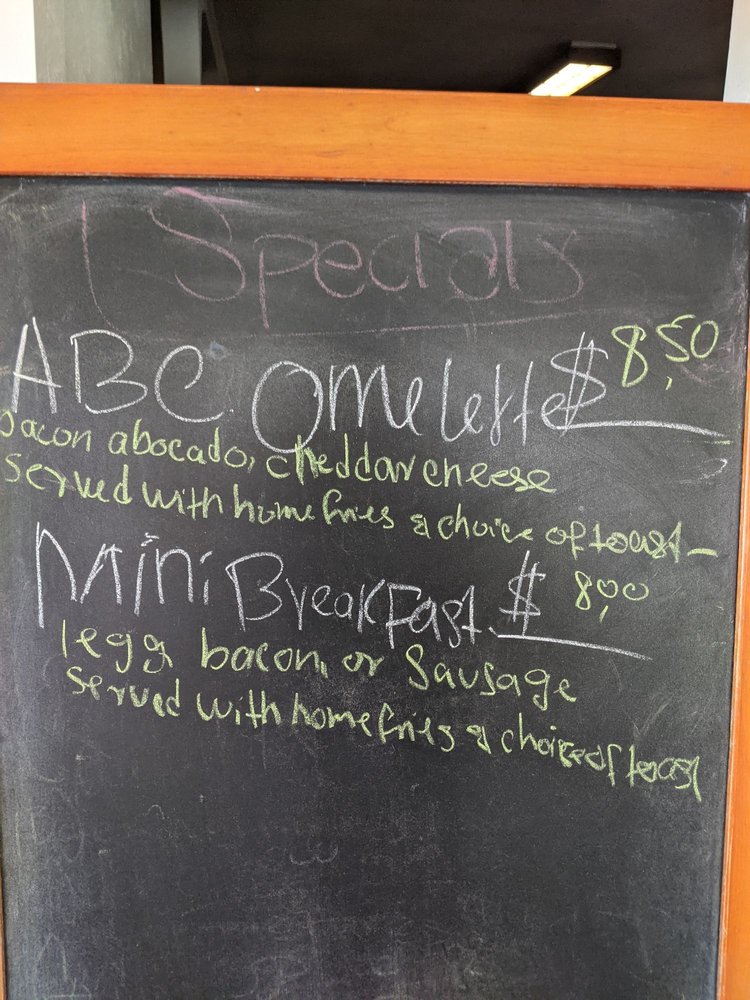 Specials
ABC. Omelette $ 8,50
bacon abocado, cheddar cheese
served with home fries & choice of toast
Mini Breakfast $ 8,00
1 egg bacon, or sausage
served with home fries & choice of toast